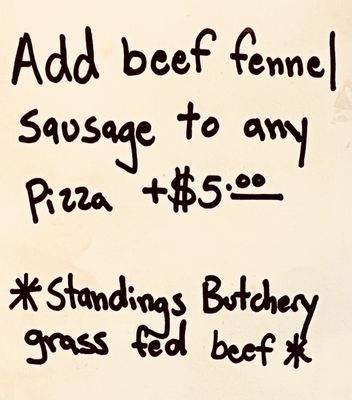 Add beef fennel
sausage to any
Pizza +$5.00
*Standings Butchery
grass fed beef*